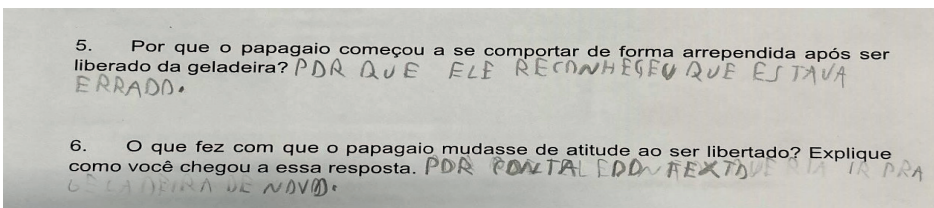 5. Por que o papagaio começou a se comportar de forma arrependida após ser
liberado da geladeira? POR QUE ELE RECONHEÇEU QUE ESTAVA
ERRADO.
6. O que fez com que o papagaio mudasse de atitude ao ser libertado? Explique
como você chegou a essa resposta. POR IR PRA
GELADEIRA DE NOVO.